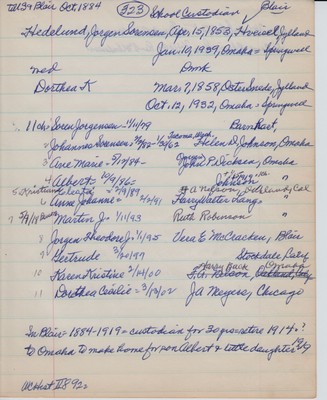 till 37 Blair Oct. 1884 (323) School Custodian Blair
Hedelund, Jorgen Sorensen, Apr. 15, 1853, Hveisel, Jylland
Jan. 10, 1939, Omaha = Springwell
med Dmk
Dorthea K Mar. 7, 1858, Oster Snede, Jylland
Oct. 12, 1932, Omaha = Springwell
11 ch: Soren Jorgensen - 11/79 Barnhart,
2 Johannes Sorensen Tacoma, Wash. Helen D. Johnson, Omaha
3 Ane Marie = 9/17/84 - John P. Dicksen, Omaha
4 Albert = 10/9/86 = Johnson "
5 2/9/89
6 Anna Johanne = 2/2/91 Harry Walter Lang "
7 Martin J. 1/1/93 Ruth Robinson "
8 Jorgen Theodore J. 1/1/95 Vera E. McCracken, Blair
9 Gertrude 3/20/97 Stockdale,
10 Karen Kristine 2/24/00 Omaha
11 Dorthea Cecilie = 3/13/02 J.A. Meyers, Chicago
In Blair = 1884-1919 = custodian for 30 yrs in there 1914. ?
to Omaha to make home for son Albert & little daughter